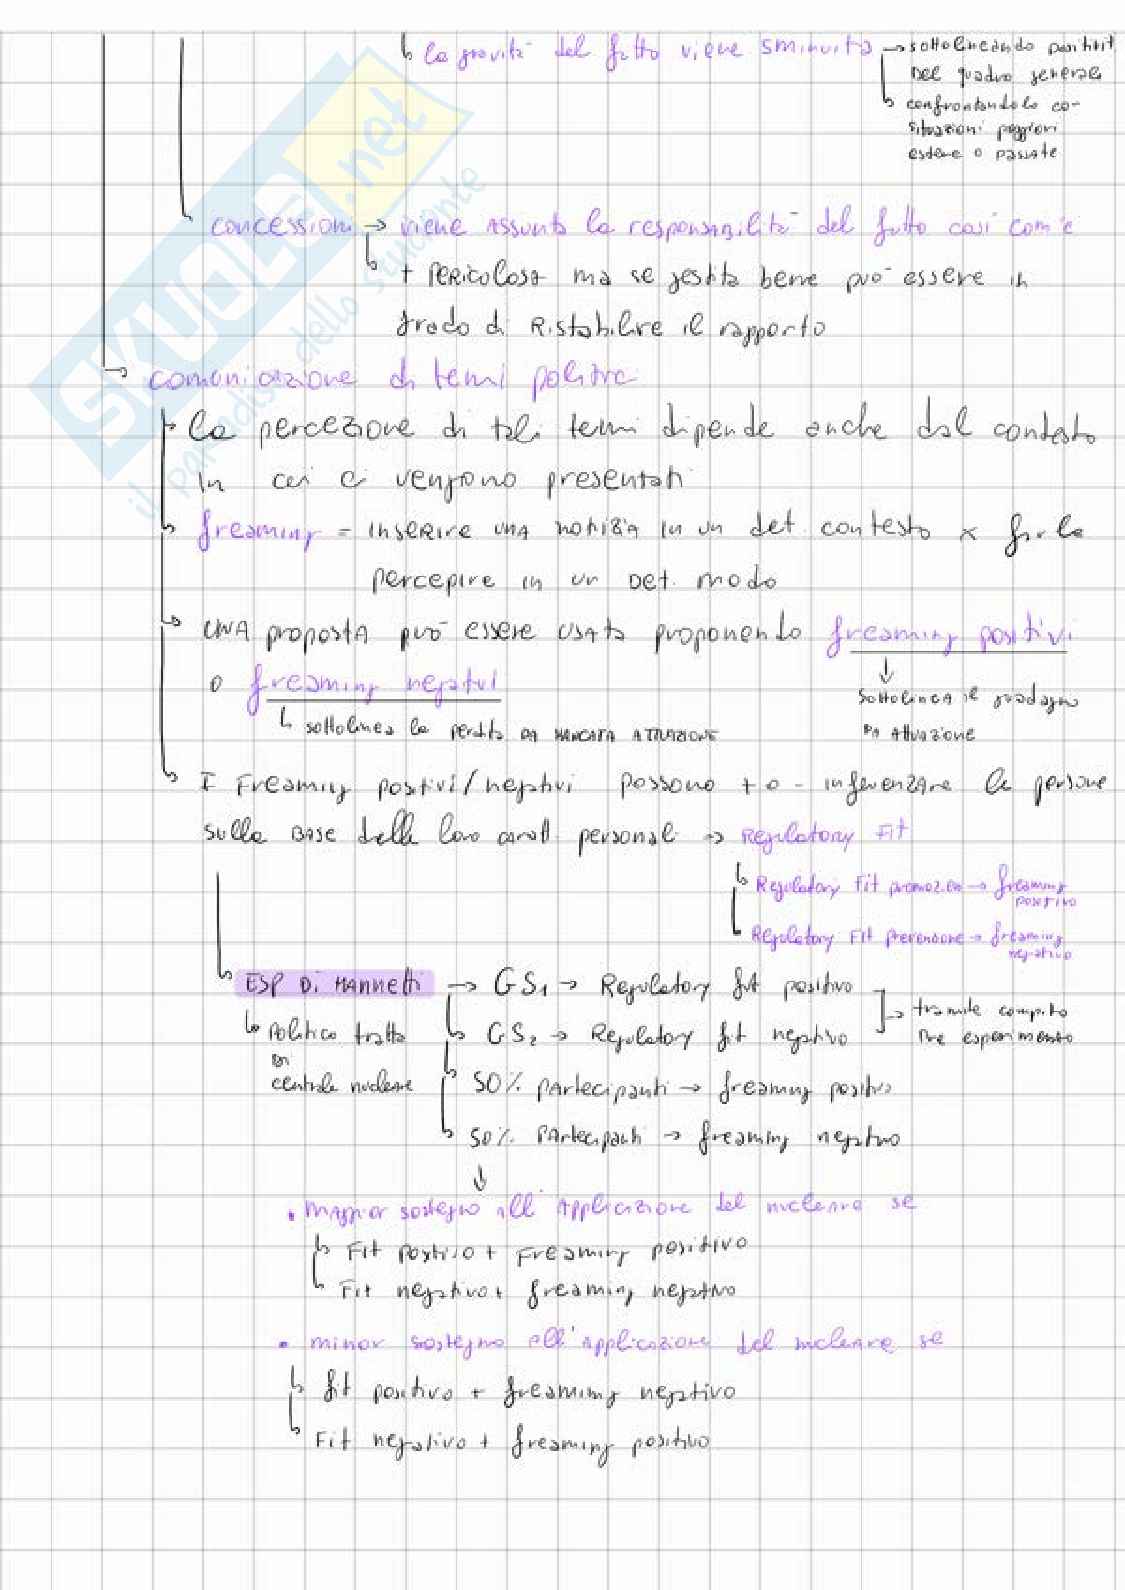 ↳ la gravità del fatto viene sminuita → sottolineando positivit
del quadro generale
↳ confrontandolo co-
situazioni peggiori
esterne o passate
concessioni → viene assunta la responsabilità del fatto così com'è
↳ + pericolosa ma se gestita bene può essere in
grado di ristabilire il rapporto
→ comunicazione di temi politici
↳ la percezione di tali temi dipende anche dal contesto
in cui ci vengono presentati
↳ freaming = inserire una notizia in un det. contesto x farla
percepire in un det. modo
↳ una proposta può essere usata proponendo freaming positivi
o freaming negativi
↓
sottolinea il guadagno
da attuazione
↳ sottolinea la perdita da mancata attuazione
↳ I freaming positivi/negativi possono + o - influenzare le persone
sulla base delle loro caratt. personali → Regulatory Fit
↳ Regulatory Fit promozion → freaming
positivo
↳ Regulatory Fit prevenzione → freaming
negativo
↳ ESP Di Mannetti → GS1 → Regulatory fit positivo
↳ GS2 → Regulatory fit negativo
→ tramite compito
pre esperimento
↳ politico tratta
di
centrale nucleare
↳ 50% partecipanti → freaming positivo
↳ 50% partecipanti → freaming negativo
↓
• maggior sostegno all'applicazione del nucleare se
↳ Fit positivo + freaming positivo
↳ Fit negativo + freaming negativo
• minor sostegno all'applicazione del nucleare se
↳ fit positivo + freaming negativo
↳ Fit negativo + freaming positivo
SKUOLA.net
il paradiso dello studente